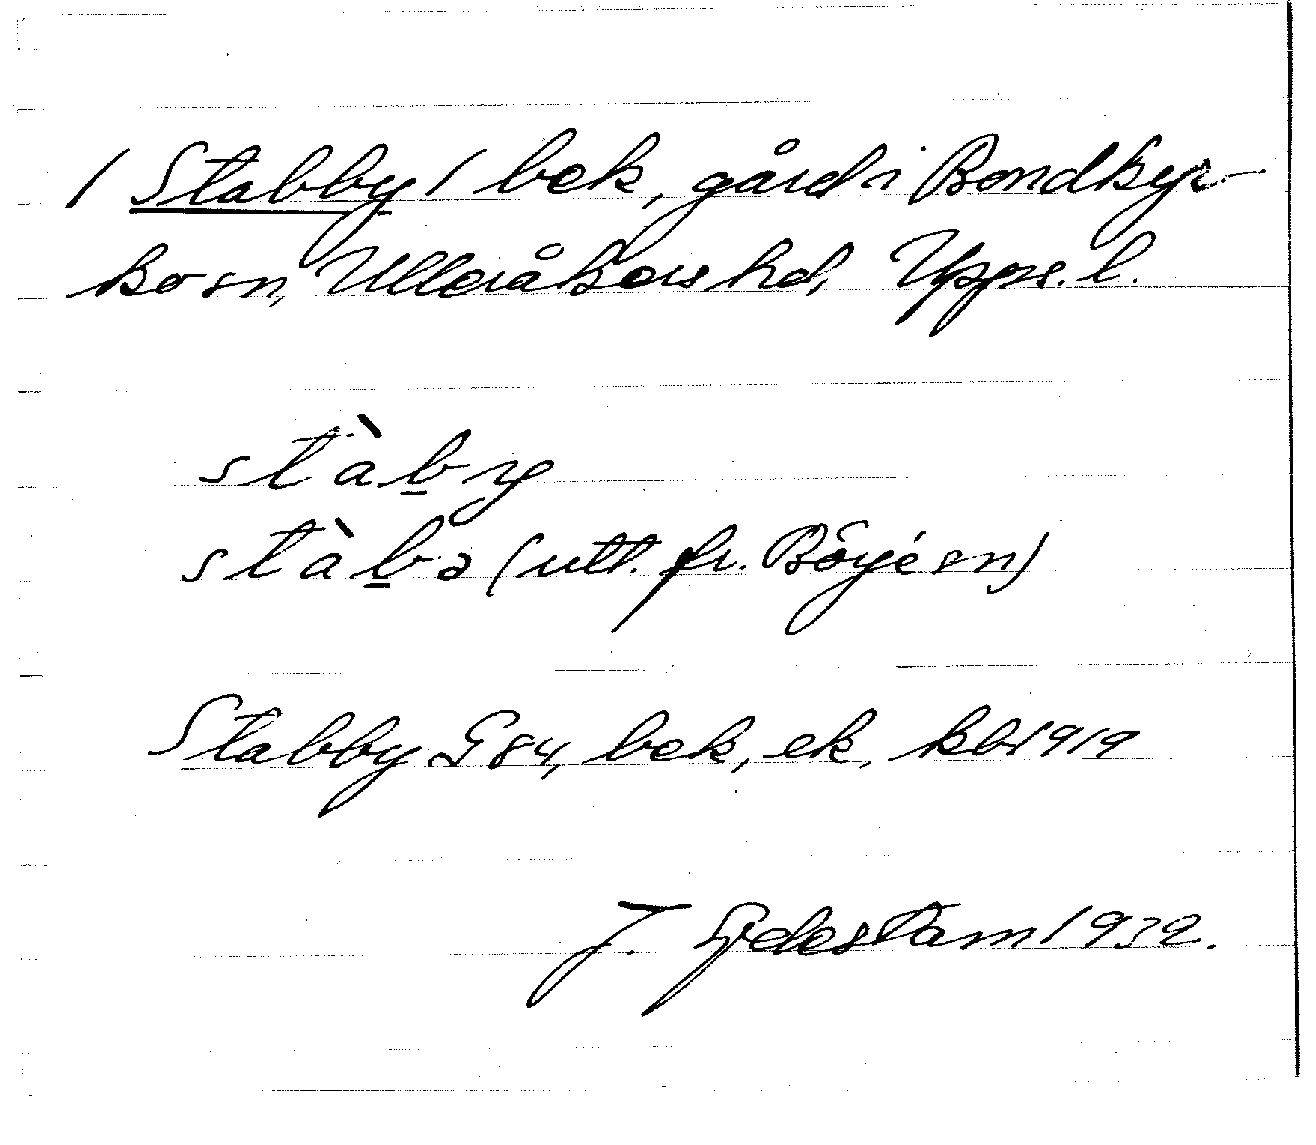 / Stabby / bek, gård i Bondkyr-
ko sn, Ulleråkers hd, Upps. l.
stàb̲y
stàb̲ə (utt. fr. Börje sn)
Stabby G84, bek, ek, kb 1919
J. Gdestam 1932.